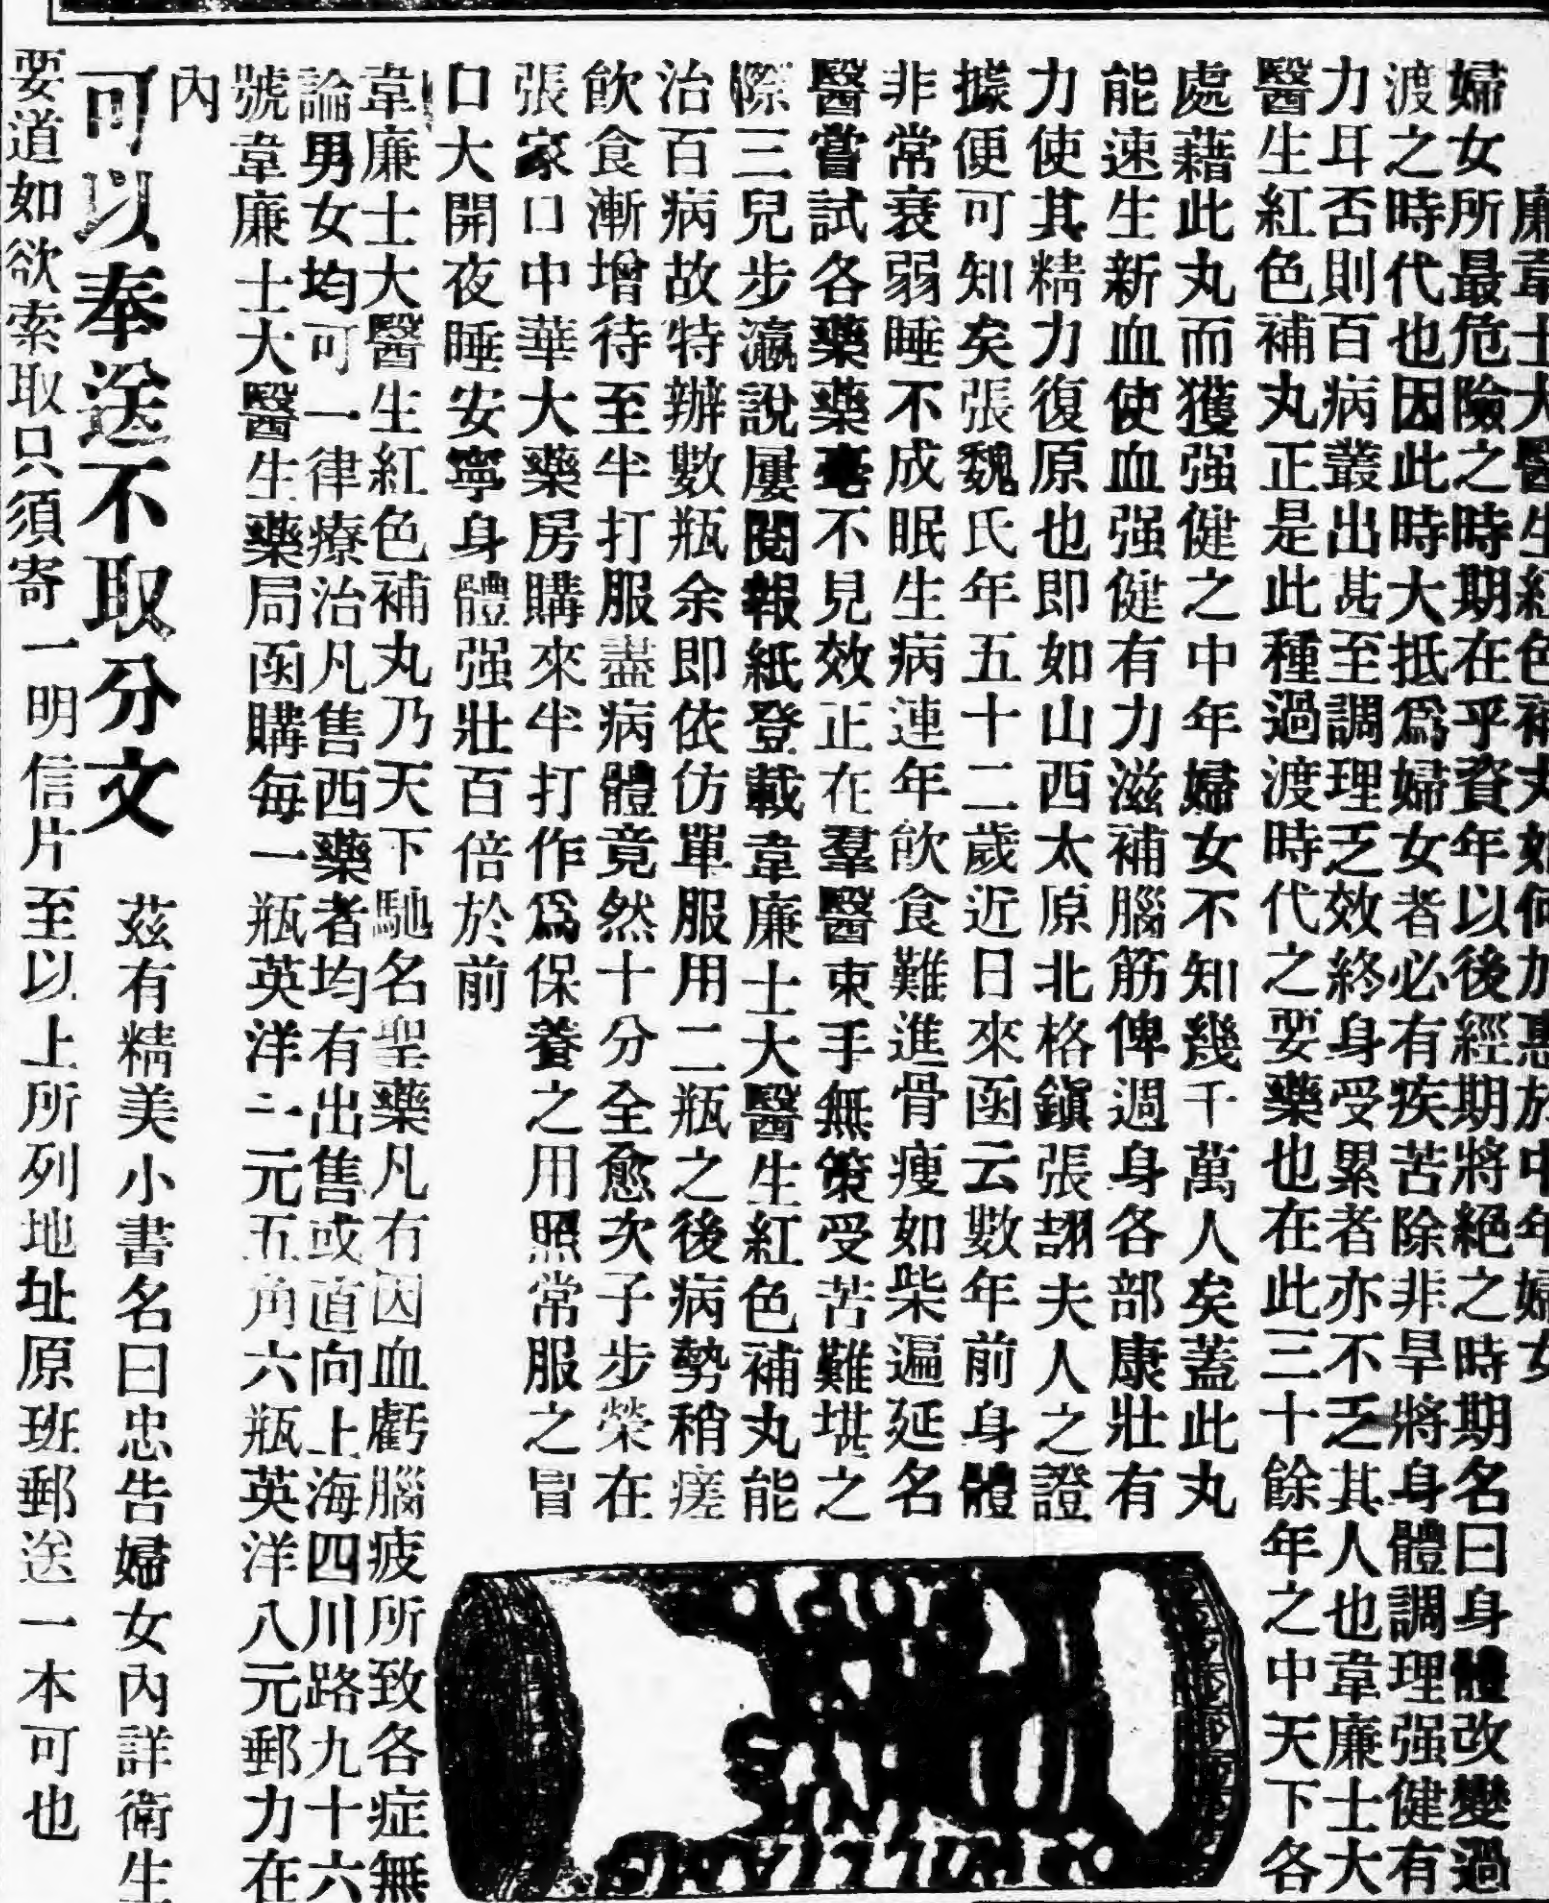 廉韋士大醫生紅色補丸如何加惠於中年婦女
婦女所最危險之時期在乎資年以後經期將絕之時期名曰身體改變過
渡之時代也因此時大抵爲婦女者必有疾苦除非早將身體調理强健有
力耳否則百病叢出甚至調理乏效終身受累者亦不乏其人也韋廉士大
醫生紅色補丸正是此種過渡時代之要藥也在此三十餘年之中天下各
處藉此丸而獲强健之中年婦女不知幾千萬人矣蓋此丸
能速生新血使血强健有力滋補腦筋俾週身各部康壯有
力使其精力復原也即如山西太原北格鎭張翃夫人之證
據便可知矣張魏氏年五十二歲近日來函云數年前身體
非常衰弱睡不成眠生病連年飮食難進骨瘦如柴遍延名
醫嘗試各藥藥毫不見效正在羣醫束手無策受苦難堪之
際三兒步瀛說屢閱報紙登載韋廉士大醫生紅色補丸能
治百病故特辦數瓶余即依仿單服用二瓶之後病勢稍瘥
飮食漸增待至半打服盡病體竟然十分全愈次子步榮在
張家口中華大藥房購來半打作爲保養之用照常服之冒
口大開夜睡安寧身體强壯百倍於前
韋廉士大醫生紅色補丸乃天下馳名聖藥凡有因血虧腦疲所致各症無
論男女均可一律療治凡售西藥者均有出售或直向上海四川路九十六
號韋廉士大醫生藥局函購每一瓶英洋一元五角六瓶英洋八元郵力在
內
可以奉送不取分文 茲有精美小書名曰忠告婦女內詳衛生
要道如欲索取只須寄一明信片至以上所列地址原班郵送一本可也